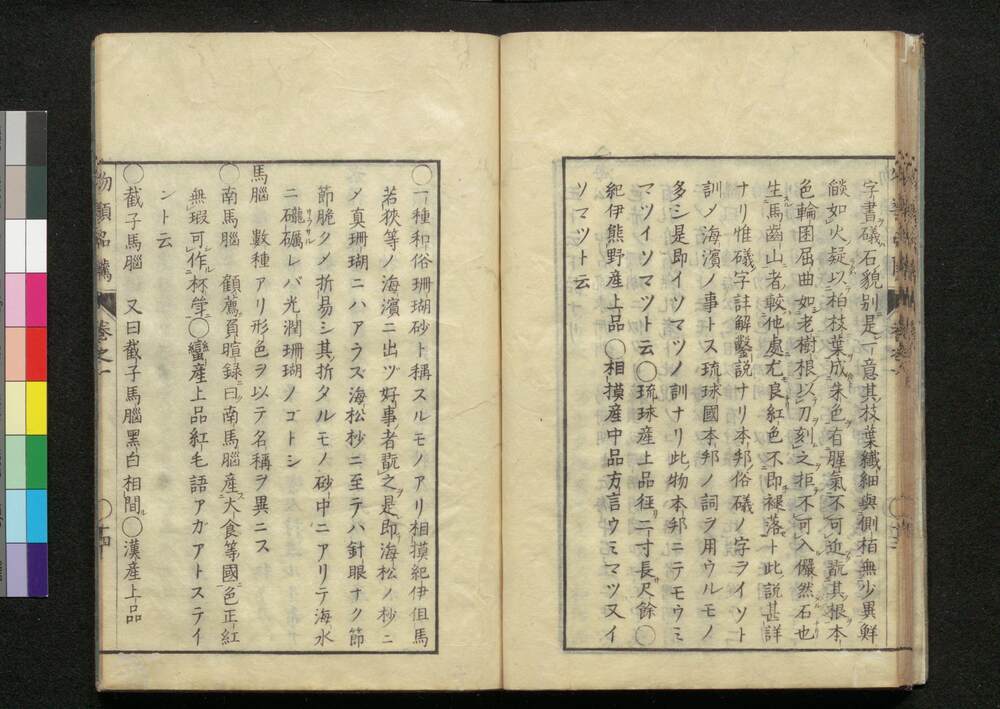 字書礒石貌別是一意其枝葉纎細與側栢無少異鮮
燄如火疑以柏枝葉成朱色有腥氣不可近翫其根本
色輪囷屈曲如老樹根以刀刻之拒不可入儼然石也
生馬齒山者較他處尤良紅色不即褪落ト此説甚詳
ナリ惟礒字註解鑿説ナリ本邦俗礒ノ字ヲイソト
訓メ海濱ノ事トス琉球國本邦ノ詞ヲ用ウルモノ
多シ是即イソマツノ訓ナリ此物本邦ニテモウミ
マツイソマツト云〇琉球産上品徑二寸長尺餘〇
紀伊熊野産上品〇相摸産中品方言ウミマツ又イ
ソマツト云
〇一種和俗珊瑚砂ト稱スルモノアリ相摸紀伊伹馬
若狹等ノ海濱ニ出ヅ好事者翫之是即海松ノ杪ニ
メ真珊瑚ニハアラズ海松杪ニ至テハ針眼ナク節
節脆タメ折易シ其折タルモノ砂中ニアリテ海水
ニ礲礪レバ光潤珊瑚ノゴトシ
馬腦 數種アリ形色ヲ以テ名稱ヲ異ニス
〇南馬腦 顧薦負暄録曰南馬腦産大食等國色正紅
無瑕可作杯斝〇蠻産上品紅毛語アガアトステイ
ント云
〇截子馬腦 又曰截子馬腦黑白相間〇漢産上品
物類品隲 卷之一 〇十四